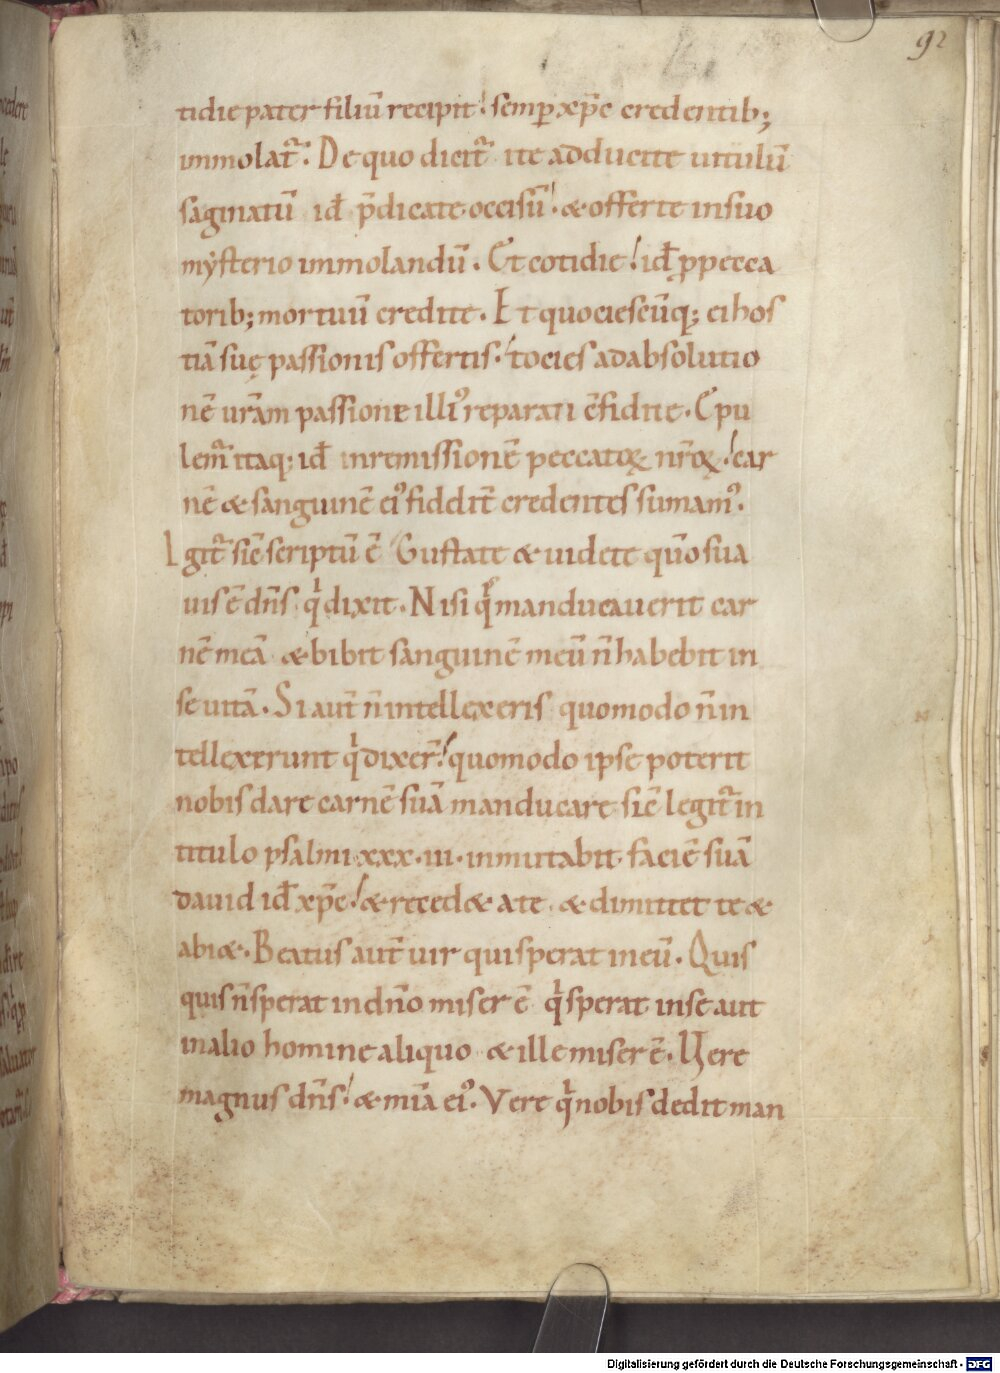 92
tidie pater filiū recipit. semp xp̄e credentib;
immolat᷑. De quo dicit᷑ ite adducite uitulū
saginatū id᷑ p̄dicate occisū. & offerte insuo
mẏsterio immolandū. Et cotidie! id᷑ ꝓpecca
torib; mortuū credite. Et quociescūq; ei hos
tiā suę passionis offertis. tocies adabsolutio
nē urām passione illiꝰ reparari c̄fidite. Epu
lem᷑ itaq; id᷑ inremissionē peccatoꝝ nr̄oꝝ! car
nē & sanguinē eiꝰ fidelit᷑ credentes sumamꝰ.
Igit᷑ sic̄ scriptū ē Gustate & uidete qm̄o sua
uis ē dn̄s qͥ dixit. Nisi qͥs manducauerit car
nē meā & bibit sanguinē meū n̄ habebit in
se uitā. Si aut̄ n̄ intellexeris quomodo n̄ in
tellexerunt qͥ dixer̄! quomodo ipse poterit
nobis dare carnē suā manducare sic̄ legit᷑ in
titulo psalmi xxx.iii. inmutabit faciē suā
dauid id᷑ xp̄c! & reced& ate & dimittet te &
abi&. Beatus aut̄ uir qui sperat in eū. Quis
quis n̄ sperat in dn̄o miser ē qͥ sperat in se aut
in alio homine aliquo & ille miser ē. Uere
magnus dn̄s! & mīa eiꝰ. Vere qͥ nobis dedit man
Digitalisierung gefördert durch die Deutsche Forschungsgemeinschaft - DFG